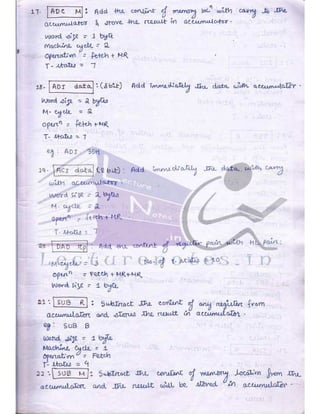 17. ADC M : Add the content of memory locn with carry to the
accumulator & store the result in accumulator.
word size = 1 byte
machine cycle = 2
operation = fetch + MR
T-states = 7
18. ADI data : (8 bit) Add immediately the data with accumulator.
word size = 2 bytes
M-cycle = 2
opern = fetch + MR
T-states = 7
eg: ADI 35H
19. ACI data (8 bit) : Add immediately the data with carry
with accumulator
word size = 2 bytes
M-cycle = 2
opern = fetch + MR
T-states : 7
20. DAD rp Add the content of register pair with HL pair.
M-cycle = 3 No. of T-states = 10
opern = Fetch + MR + MR
word size = 1 byte
21: SUB R : Subtract the content of any register from
accumulator and stores the result in accumulator.
eg: SUB B
word size = 1 byte
Machine Cycle = 1
operation = Fetch
T-states = 4
22: SUB M : Subtract the content of memory location from the
accumulator and the result will be stored in accumulator.
Lecture Notes In
LectureNotes.in